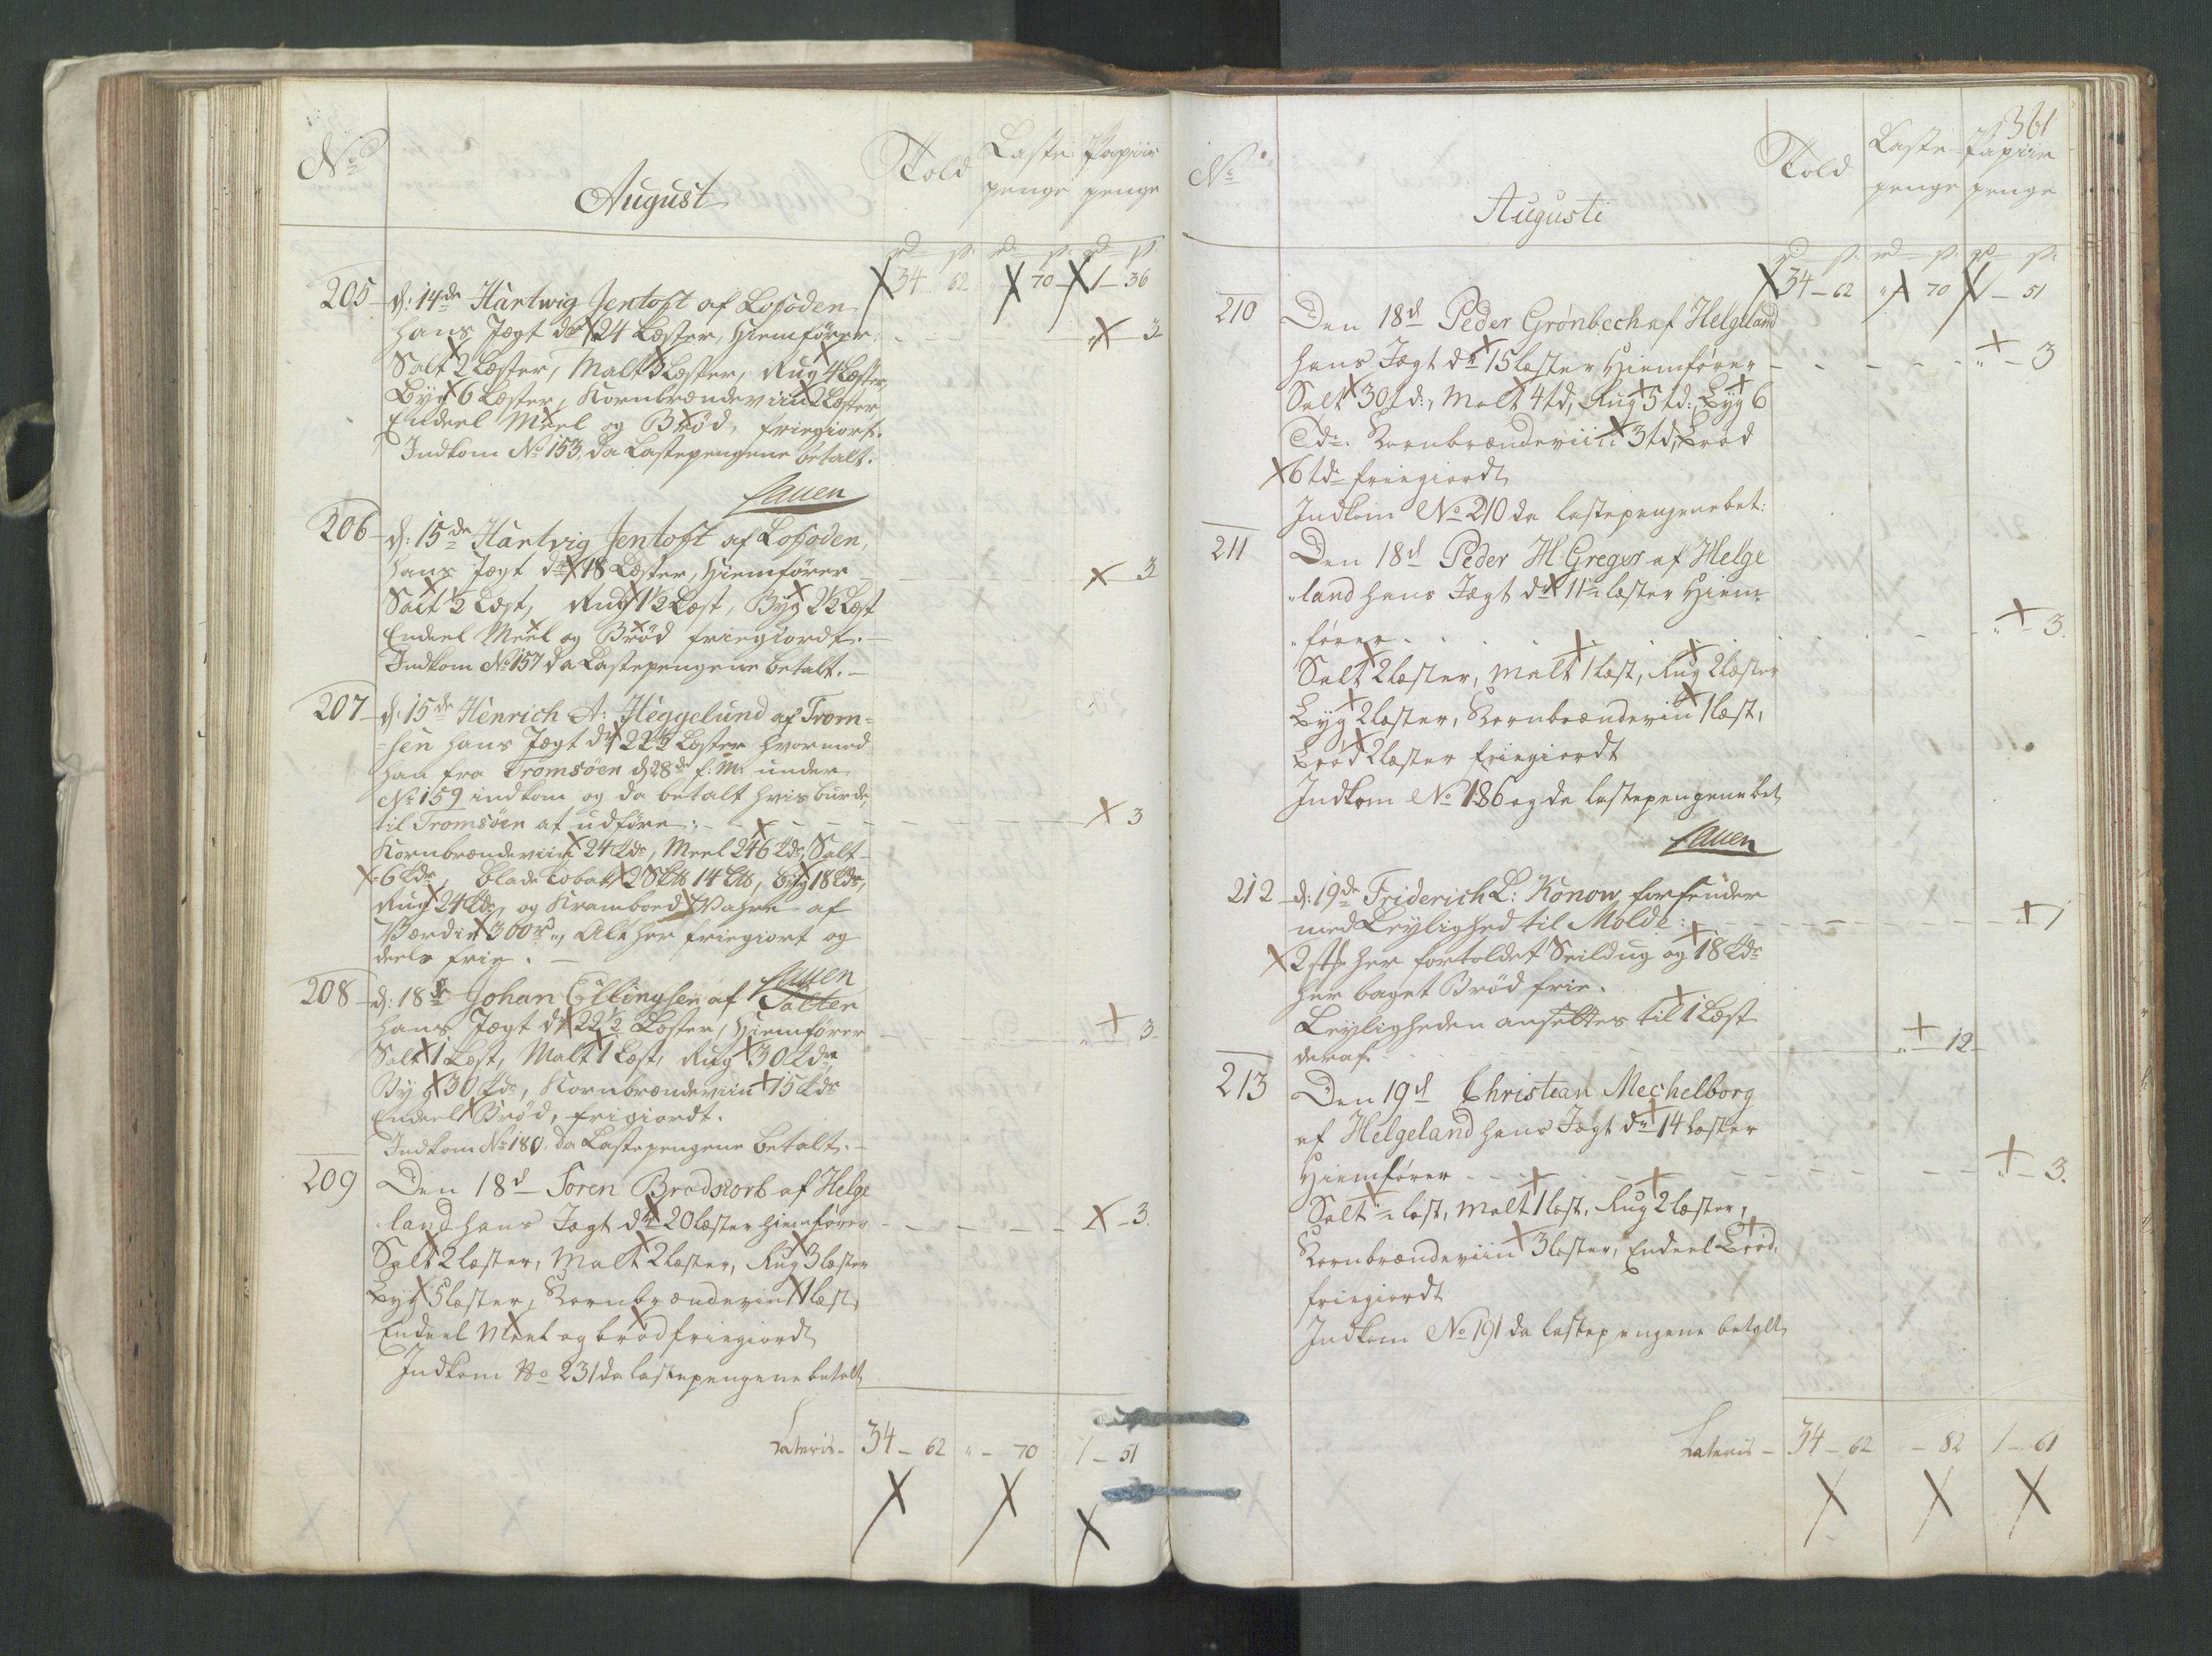 No
August
Told
Laste penge
Papiir penge
rd s. rd s. rd s.
34 62 " 70 1 - 36
205 d: 14de Hartwig Jentoft af Lofoden
hans Jægt dr 24 Læster, Hiemfører " 3
Salt 2 Læster, Malt 3 Læster, Rug 4 Læster,
Byg 6 Læster, Kornbrændeviin 2 Læster
Endeel Meel og Brød, friegiort.
Indkom No 153, da Lastepengene betalt.
206 d: 15de Hartvig Jentoft af Lofoden,
hans Jægt dr 18 Læster, Hiemfører 3
Salt ½ Læst, Rug 1½ Læst, Byg 2½ Læst
Endeel Meel og Brød friegiordt.
Indkom No 157 da Lastepengene betalt.
207 d: 15de Henrich A: Heggelund af Trom=
=sen hans Jægt dr 22½ Læster hvormed
han fra Tromsöen d: 28de f: M: under
No 159 indkom og da betalt hvis burde,
til Tromsöen at udføre: 3
Kornbrændeviin 24 Tdr, Meel 246 Tdr, Salt
6 Tdr, Blade Tobak 2 Sk℔ 14 ℔, Byg 18 Tdr,
Rug 24 Tdr, og Kramboed Vahre af
Værdie 300 rd, Alt her friegiort og
deels frie.
208 d: 18de Johan Ellingsen af Salten
hans Jægt dr 22½ Læster, Hiemfører " 3
Salt 1 Læst, Malt 1 Læst, Rug 30 Tdr,
Byg 30 Tdr, Kornbrændeviin 15 Tdr
Endeel Brød, frigiordt.
Indkom No 180, da Lastepengene betalt.
209 Den 18d Soren Brodskorb af Helge
land hans Jægt dr 20 læster hiemfører 3.
Salt 2 læster, Malt 2 læster, Rug 3 læster
Byg 5 læster, Kornbrændeviin 1 læst,
Endeel Meel og brød friegiordt
Indkom No 231 da lastepengene betalt
Lateris 34 - 62 " - 70 1 - 51
361
No
Augusti
Told
Laste penge
Papiir penge
rd s. rd s. rd s.
34 - 62 " 70 1 - 51
210 Den 18d Peder Grønbech af Helgeland
hans Jægt dr 15 læster Hiemfører " - 3
Salt 30 td:, Malt 4 td, Rug 5 td:, Byg 6
Tdr. Kornbrændeviin 3 td, Brød
6 tdr friegiordt
Indkom No 210 da lastepengene bet:
211 Den 18d Peder H Greger af Helge
land hans Jægt dr 11 læster Hiem=
"fører " - 3.
Salt 2 læster, Malt 1 læst, Rug 2 læster
Byg 2 læster, Kornbrændeviin 1 læst,
Brød 2 læster friegiordt
Indkom No 186 og da lastepengene bet
212 d: 19de Friderich L: Konow forsender
med Leylighed til Molde: 1
2 st: her fortoldet Seildug og 18 Tdr
her baget Brød frie.
Leyligheden ansættes til 1 Læst
deraf. " - 12
213 Den 19d Christian Mechelborg
af Helgeland hans Jægt dr 14 læster
Hiemfører " - 3.
Salt læst, Malt 1 læst, Rug 2 læster,
Kornbrændeviin 3 læster, Endeel Brød,
friegiordt
Indkom No 191 da lastepengene betalt
Lateris - 34 - 62 - 82 1 - 61